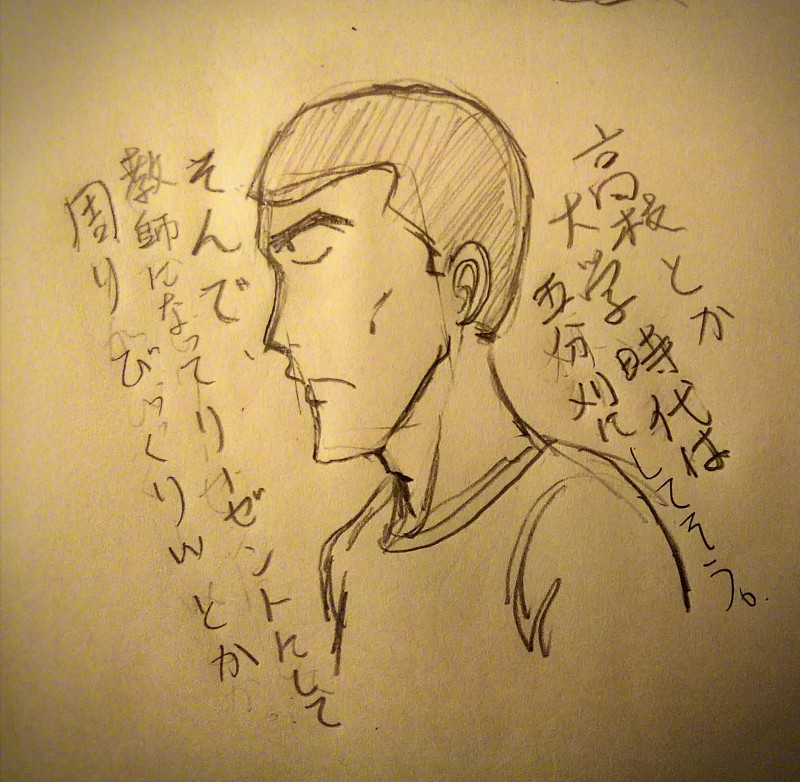 高校とか
大学時代は
五分刈にしてそう。
そんで、
教師になってリーゼントにして
周りびっくりwとか